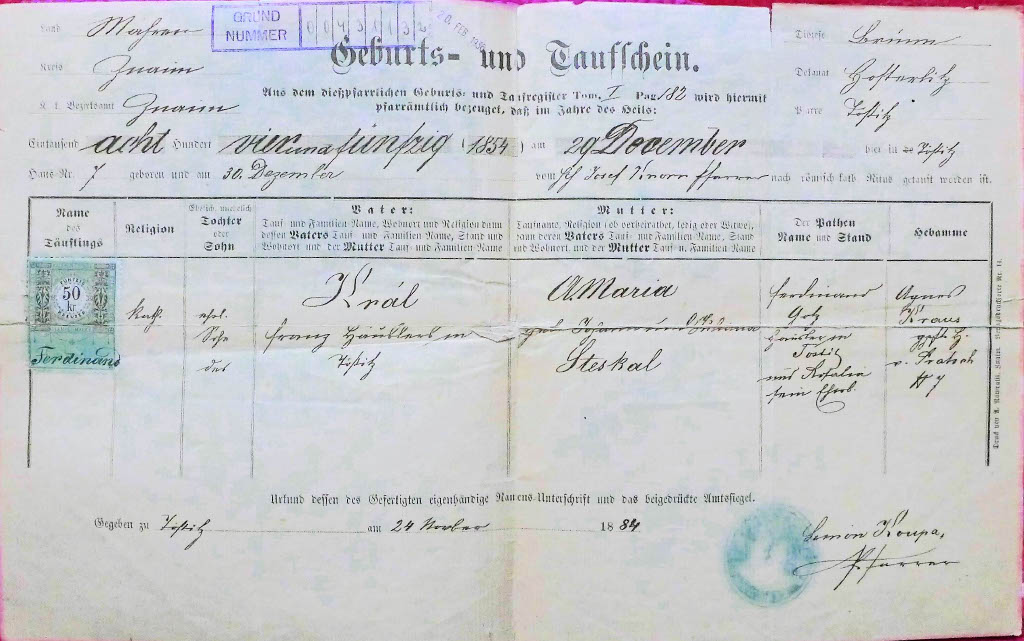 Land Mähren
GRUND
NUMMER
0 0 4 3 0 1 3 2
20. FEB. 1939
Diözese Brünn
Kreis Znaim
Geburts- und Taufschein.
Dekanat Hosterlitz
K. k. Bezirksamt Znaim
Aus dem dießpfarrlichen Geburts- und Taufregister Tom. I Pag. 182 wird hiermit
pfarrämtlich bezeuget, daß im Jahre des Heils:
Pfarre Tößitz
Eintausend acht Hundert vier und fünfzig (1854) am 29 December hier in Tößitz
Haus-Nr. 7 geboren und am 30. Dezember vom Josef Pfarrer nach römisch kath. Ritus getauft worden ist.
Name
des
Täuflings
Religion
Ehelich, unehelich
Tochter
oder
Sohn
Vater:
Tauf- und Familien Name, Wohnort und Religion dann
dessen Vaters Tauf- und Familien Name, Stand und
Wohnort und der Mutter Tauf- und Familien Name
Mutter:
Taufname, Religion (ob verheirathet, ledig oder Witwe),
dann deren Vaters Tauf- und Familien Name, Stand
und Wohnort und der Mutter Tauf- u. Familien Name
Der Pathen
Name und Stand
Hebamme
50
kr.
Ferdinand
Kath.
ehel.
Sohn
des
Král
Franz Häuslers in
Tößitz
AMaria
Johann und
Steskal
Ferdinand
Gotz
Häusler in
Tößitz
und Rosalia
sein Eheweib.
Agnes
Kraus
gepr. H.
v. Pratsch
# 7
Druck von M. Znaim. Nr. 11.
Urkund dessen des Gefertigten eigenhändige Namens-Unterschrift und das beigedrückte Amtssiegel.
Gegeben zu Tößitz am 24 November 1884
Simon Koupa,
Pfarrer